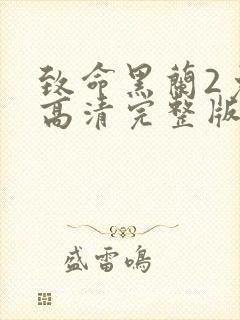 致命黑蘭2
高清完整版
盛雷鳴